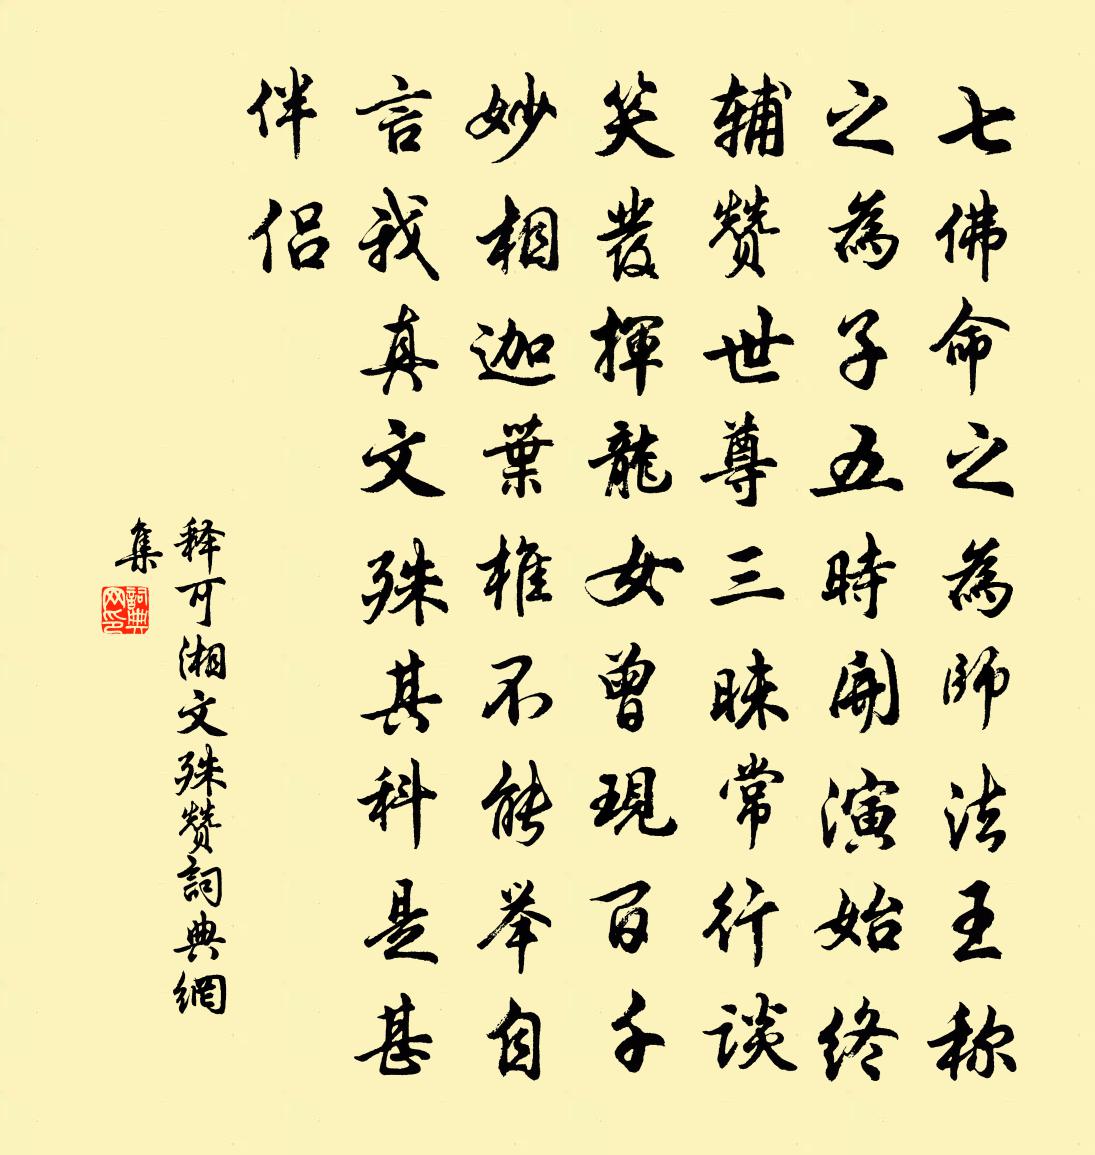 七佛命之為師法王称
之為子五時開演始終
辅赞世尊三昧常行談
笑發揮龍女曾現百千
妙相迦葉椎不能举自
言我真文殊其科是甚
伴侣
释可湘文殊赞詞典網
集
詞典
网印